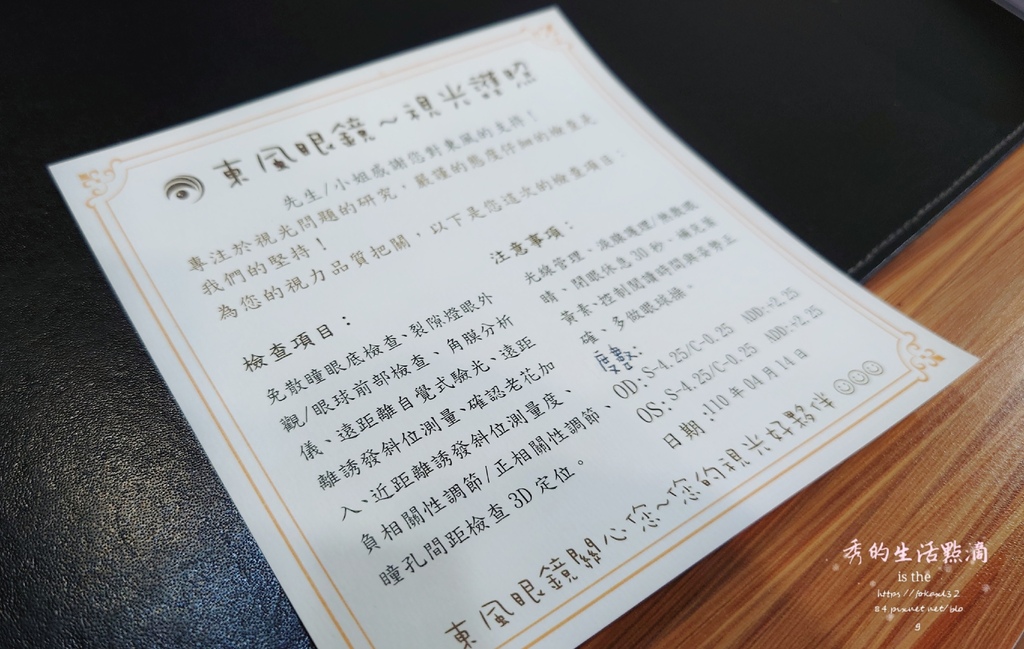 東風眼鏡~視光護照
先生/小姐感謝您對東風的支持！
專注於視光問題的研究，嚴謹的態度仔細的檢查是
我們的堅持！
為您的視力品質把關，以下是您這次的檢查項目：
檢查項目：
免散瞳眼底檢查、裂隙燈眼外
觀/眼球前部檢查、角膜分析
儀、遠距離自覺式驗光、遠距
離誘發斜位測量、確認老花加
入、近距離誘發斜位測量度、
負相關性調節/正相關性調節、
瞳孔間距檢查3D定位。
注意事項：
光線管理、淚腺護理/熱敷眼
睛、閉眼休息30秒、補充葉
黃素、控制閱讀時間與姿勢正
確、多做眼球操。
度數：
OD:S-4.25/C-0.25 ADD:+2.25
OS:S-4.25/C-0.25 ADD:+2.25
日期:110年04月14日
東風眼鏡關心您~您的視光好夥伴
秀的生活點滴
is the
https://fokam132
84.pixnet.net/blo
g